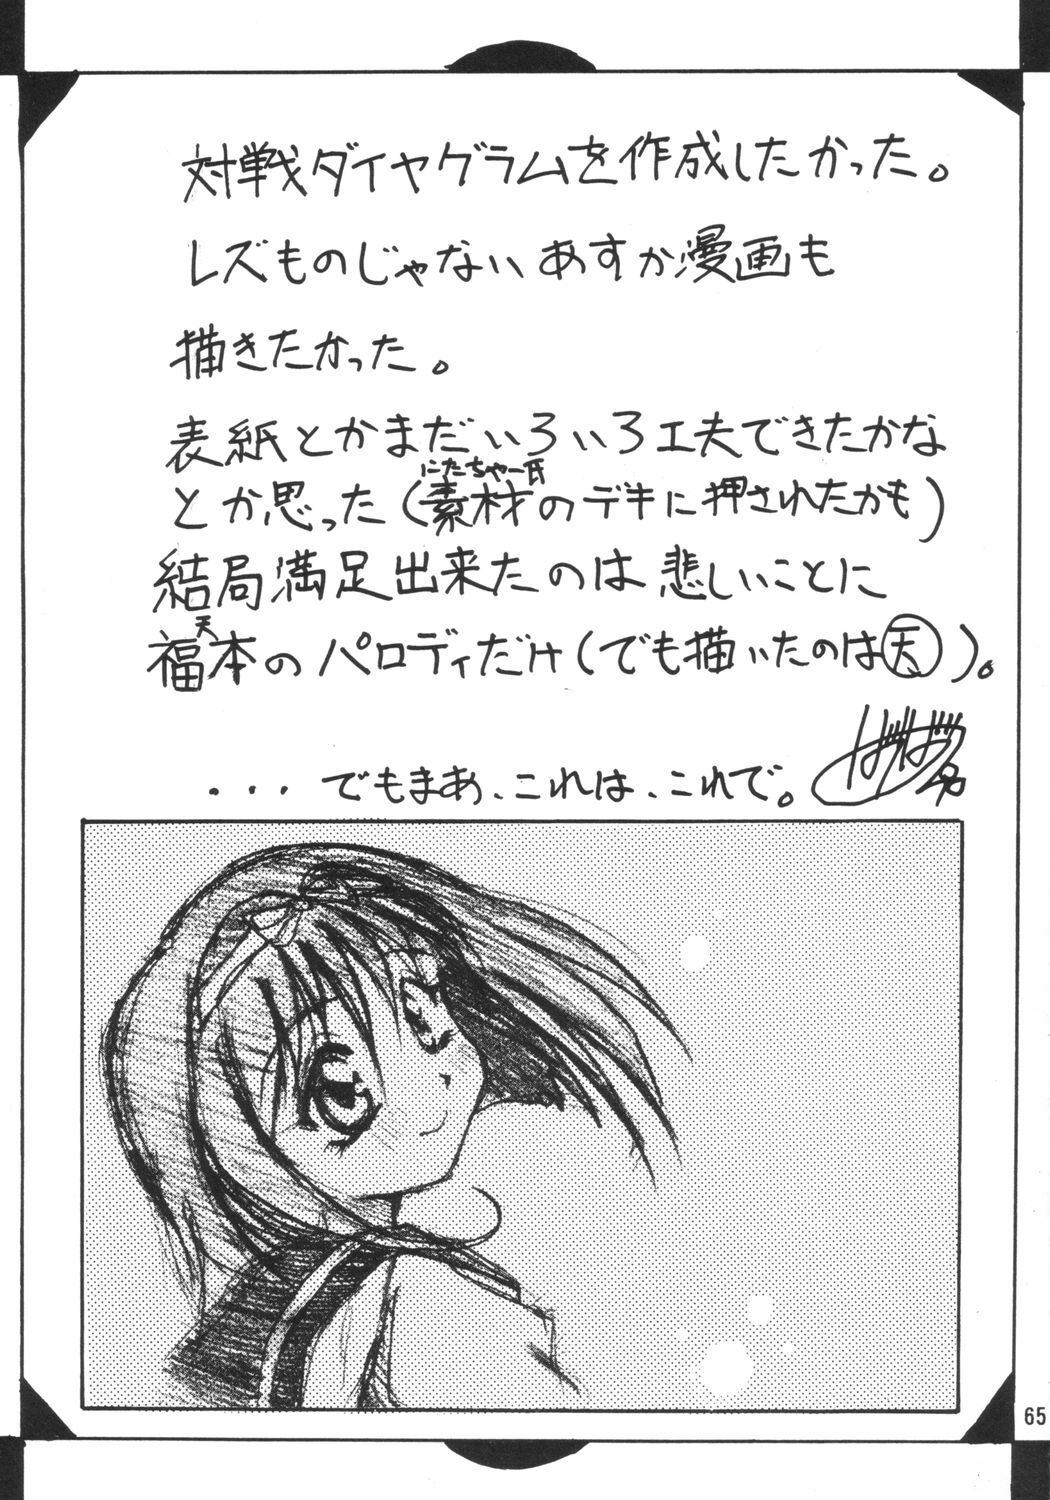 対戦ダイヤグラムを作成したかった。
レズものじゃないあすか漫画も
描きたかった。
表紙とかまだいろいろ工夫できたかな
にたちゃー氏
とか思った(素材のデキに押されたかも)
結局満足出来たのは悲しいことに
天
福本のパロディだけ(でも描いたのは天)。
...でもまあ、これは、これで。
65